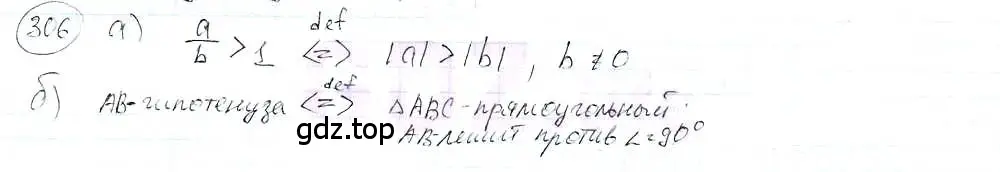 306 а) a/b > 1 <=> def |a| > |b|, b ≠ 0
б) AB-гипотенуза <=> def △ABC-прямоугольный.
AB-лежит против ∠=90°
gdz.top